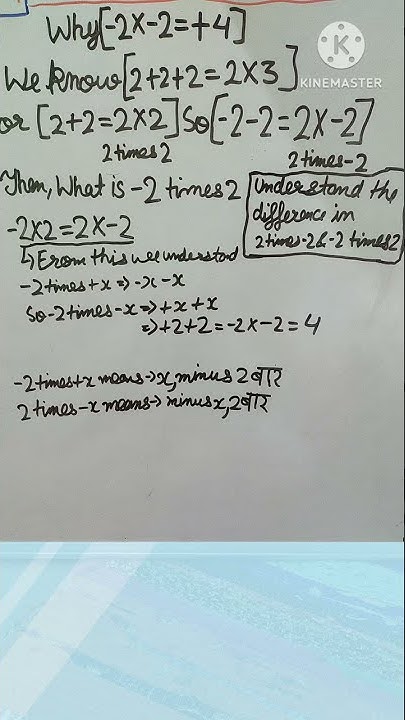 Why[-2×-2=+4]
K
KINEMASTER
We know[2+2+2=2×3]
or [2+2=2×2]So[-2-2=2×-2]
2 times 2
2 times-2
Then, What is -2 times 2
-2×2=2×-2
Understand the
difference in
2 times-2 & -2 times 2
↳ From this we understand
-2 times +x => -x -x
So -2 times -x => +x +x
=> +2+2=-2×-2=4
-2 times +x means → x, minus 2 बार
2 times -x means → minus x, 2 बार